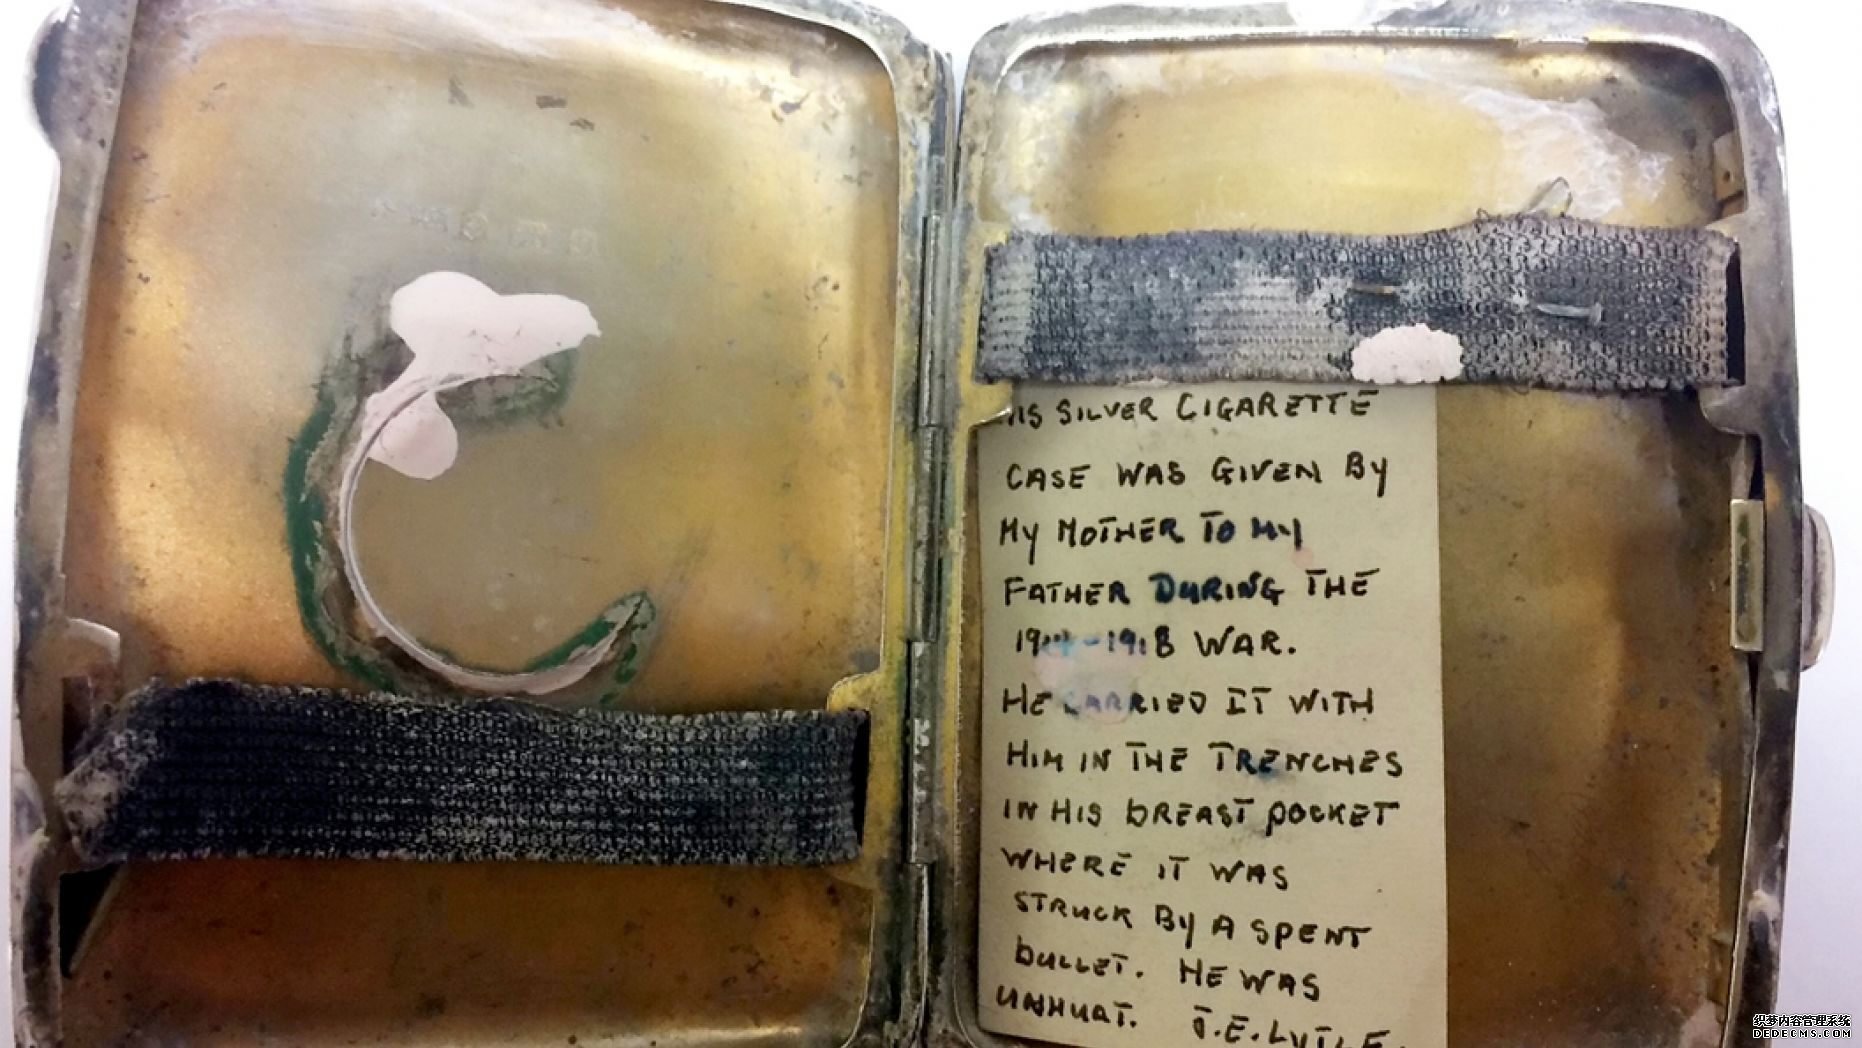 HIS SILVER CIGARETTE
CASE WAS GIVEN BY
MY MOTHER TO MY
FATHER DURING THE
1914-1918 WAR.
HE CARRIED IT WITH
HIM IN THE TRENCHES
IN HIS BREAST POCKET
WHERE IT WAS
STRUCK BY A SPENT
BULLET. HE WAS
UNHURT. J.E. LYTLE.
织梦内容管理系统
DEDECMS.COM